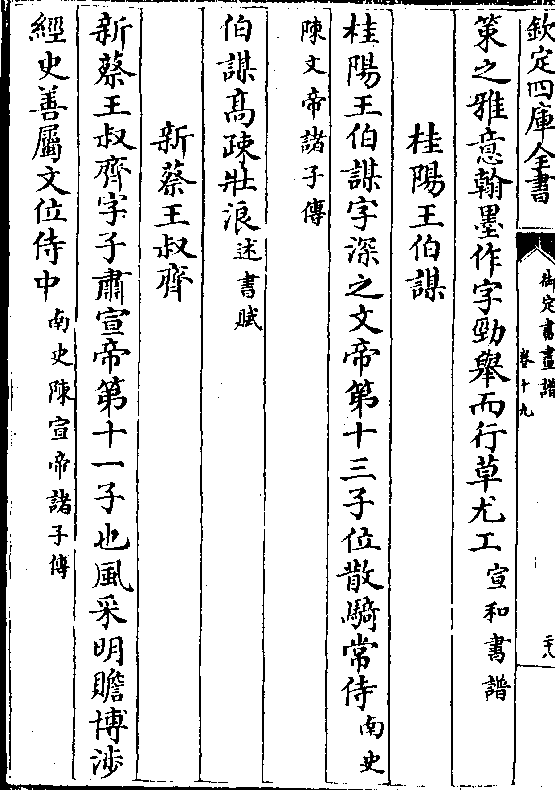 欽定四庫全書
御定書畫譜
卷十九
二十八
策之雅意翰墨作字勁舉而行草尤工宣和書譜
桂陽王伯謀
桂陽王伯謀字深之文帝第十三子位散騎常侍南史
陳文帝諸子傳
伯謀高疎壯浪述書賦
新蔡王叔齊
新蔡王叔齊字子肅宣帝第十一子也風采明贍博涉
經史善屬文位侍中南史陳宣帝諸子傳